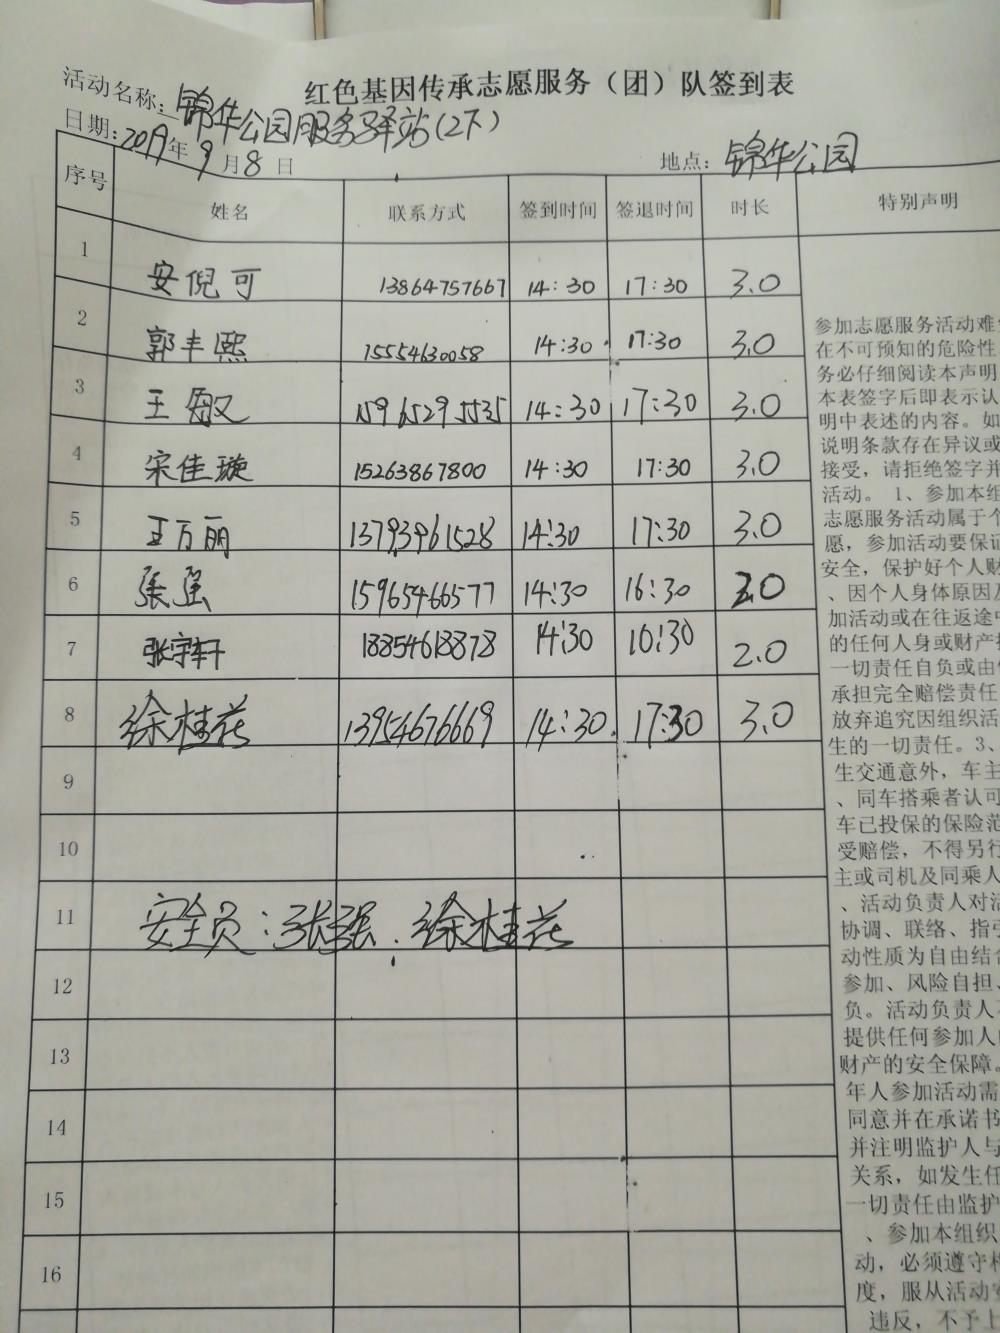 红色基因传承志愿服务（团）队签到表
活动名称：锦华公园服务驿站(2下)
日期：2019年9月8日 地点：锦华公园
序号 姓名 联系方式 签到时间 签退时间 时长 特别声明
1 安倪可 13864757667 14:30 17:30 3.0
2 郭丰熙 15554630058 14:30 17:30 3.0
3 王敏 15965295535 14:30 17:30 3.0
4 宋佳璇 15263867800 14:30 17:30 3.0
5 王万丽 13793961528 14:30 17:30 3.0
6 張强 15965466577 14:30 16:30 2.0
7 张宇轩 18854618878 14:30 16:30 2.0
8 徐桂花 13954676669 14:30 17:30 3.0
9
10
11 安全员：张强、徐桂花
12
13
14
15
16
参加志愿服务活动难
在不可预知的危险性
务必仔细阅读本声明
本表签字后即表示认
明中表述的内容。如
说明条款存在异议或
接受，请拒绝签字并
活动。 1、参加本组
志愿服务活动属于个
愿，参加活动要保证
安全，保护好个人财
、因个人身体原因及
加活动或在往返途中
的任何人身或财产
一切责任自负或由
承担完全赔偿责任
放弃追究因组织活
生的一切责任。3、
生交通意外，车主
、同车搭乘者认可
车已投保的保险范
受赔偿，不得另行
主或司机及同乘人
、活动负责人对活
协调、联络、指引
动性质为自由结合
参加、风险自担、
负。活动负责人
提供任何参加人
财产的安全保障。
年人参加活动需
同意并在承诺书
并注明监护人与
关系，如发生任
一切责任由监护
、参加本组织
动，必须遵守相
度，服从活动安
违反，不予上